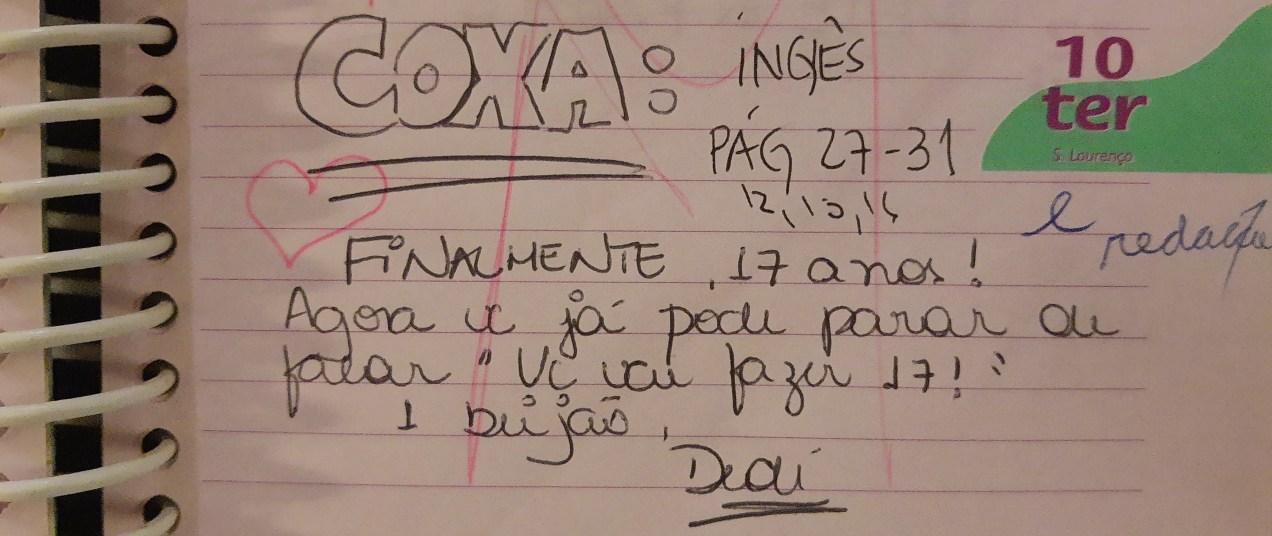 COXA: INGLÊS
10
ter
S. Lourenço
PÁG 27-31
12, 13, 14
e redação
FINALMENTE, 17 anos!
Agora vc já pode parar de
falar "Vc vai fazer 17!"
1 beijão,
Dedi